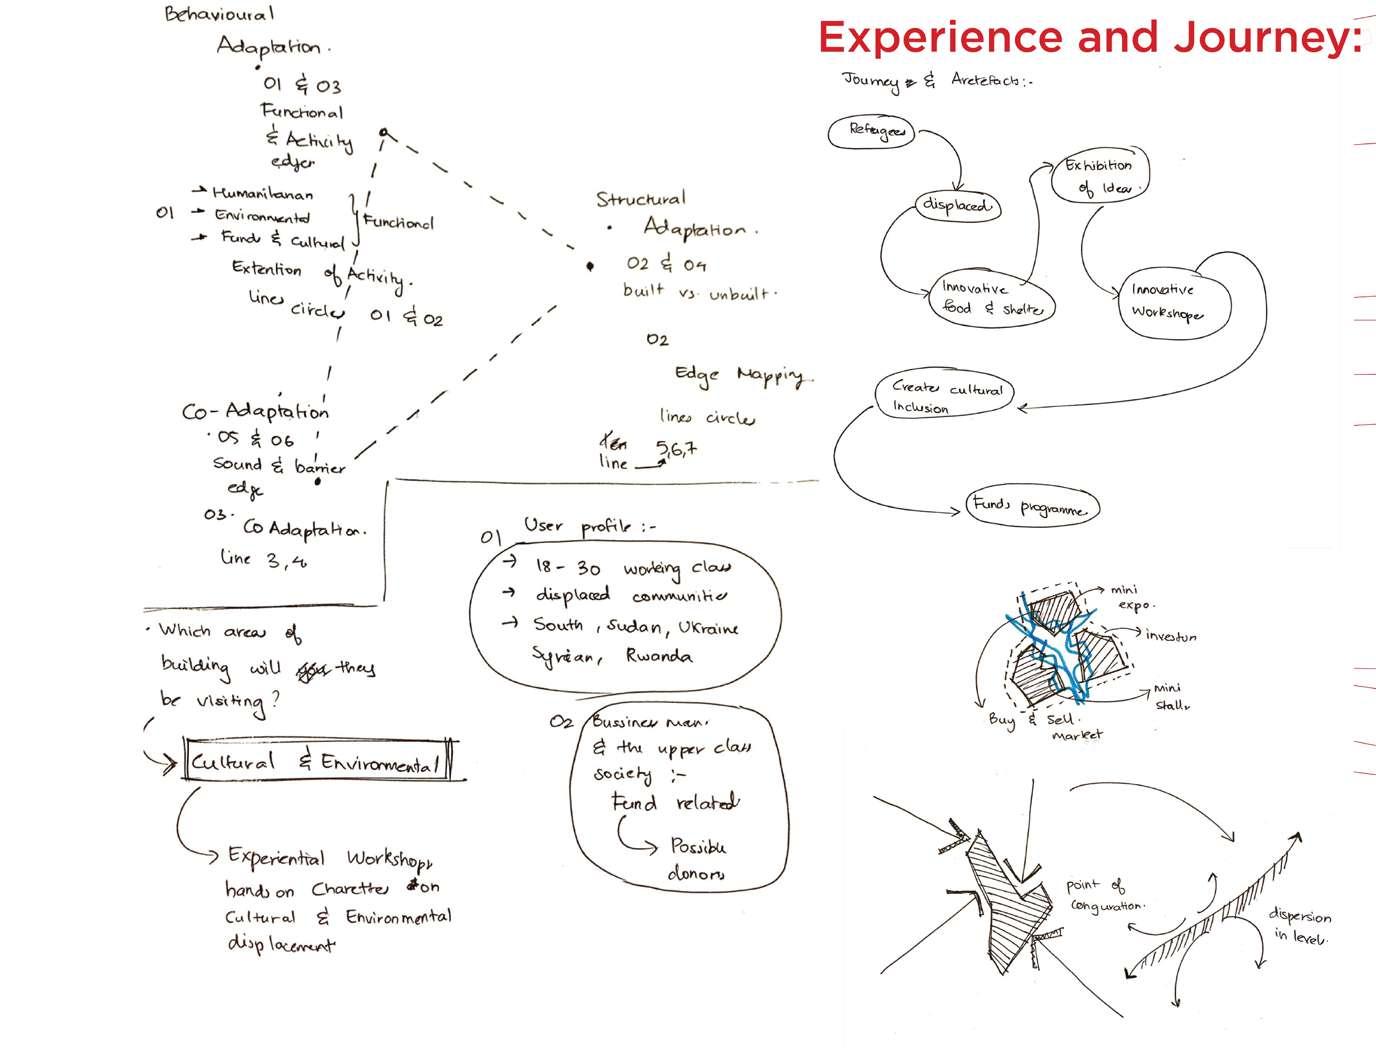 Experience and Journey:
Behavioural
Adaptation.
01 & 03
Functional
& Activity
edges
01
→ Humanitarian
→ Environmental
→ Funds & Cultural
Functional
Extention of Activity.
lines
circles 01 & 02
Co-Adaptation
05 & 06
Sound & barrier
edge
03.
Co Adaptation.
line 3,4
Structural
Adaptation.
02 & 04
built vs. unbuilt.
02
Edge Mapping.
lines circles
line → 5,6,7
Which area of
building will they
be visiting?
Cultural & Environmental
Experiential Workshops
hands on Charettes on
Cultural & Environmental
displacement
01
User profile :-
→ 18 - 30 working class
→ displaced communities
→ South, Sudan, Ukraine
Syrian, Rwanda
02
Bussiness man.
& the upper class
society :-
Fund related
Possible
donors
Journey & Artefacts:-
Refugees
displaced
Innovative
food & shelter
Exhibition
of Ideas.
Innovative
workshops
Create cultural
Inclusion
Funds programme
mini
expo.
mini
stalls
Buy & Sell.
market
point of
conguration.
dispersion
in level.